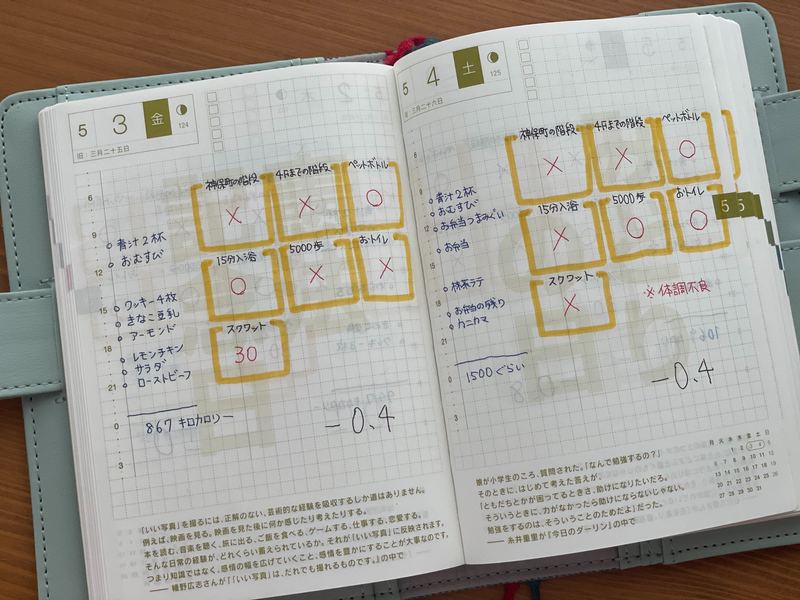 5 3 金
124
旧:三月二十五日
神保町の階段
4Fまでの階段
ペットボトル
×
×
○
15分入浴
5000歩
おトイレ
○
×
×
スクワット
30
6
9
12
15
18
21
0
3
青汁2杯
おむすび
クッキー4枚
きなこ豆乳
アーモンド
レモンチキン
サラダ
ローストビーフ
867キロカロリー
-0.4
「いい写真」を撮るには、正解のない、芸術的な経験を吸収するしか道はありません。
例えば、映画を見る。映画を見た後に何か感じたり考えたりする。
本を読む、音楽を聴く、旅に出る、ご飯を食べる、ゲームする、仕事する、恋愛する。
そんな日常の経験が、どれくらい蓄えられているか。それが「いい写真」に反映されます。
つまり知識ではなく、感情の幅を広げていくこと、感情を豊かにすることが大事なのです。
——幡野広志さんが『「いい写真」は、だれでも撮れるものです。』の中で
5 4 土
125
旧:三月二十六日
神保町の階段
4Fまでの階段
ペットボトル
×
×
○
15分入浴
5000歩
おトイレ
×
○
○
スクワット
×
※体調不良
5 5
6
9
12
15
18
21
0
3
青汁2杯
おむすび
お弁当つまみぐい
お弁当
抹茶ラテ
お弁当の残り
カニカマ
1500ぐらい
-0.4
娘が小学生のころ、質問された。「なんで勉強するの?」
そのときに、はじめて考えた答えが、
「ともだちとかが困ってるときさ、助けになりたいだろ。
そういうときに、力がなかったら助けにならないじゃない。
勉強をするのは、そういうことのためだよ」だった。
——糸井重里が『今日のダーリン』の中で
月 火 水 木 金 土 日
1 2 3 4 5
6 7 8 9 10 11 12
13 14 15 16 17 18 19
20 21 22 23 24 25 26
27 28 29 30 31